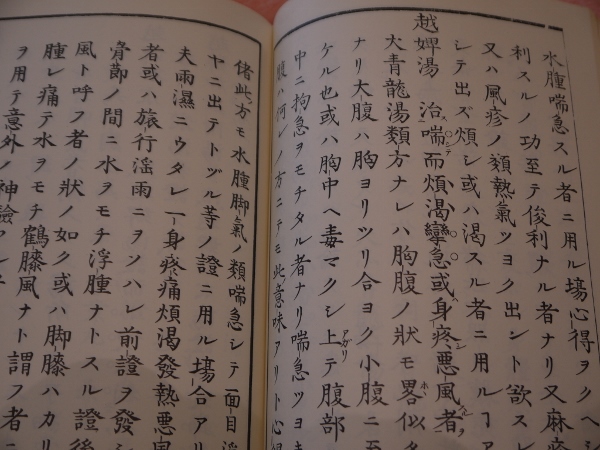 水腫喘急スル者ニ用ル塲心得ヲクヘ
利スルノ功至テ俊利ナル者ナリ又麻疹
又ハ風疹ノ類熱氣ツヨク出ント欲スレ
シテ出ズ煩シ或ハ渇スル者ニ用ルヿア
越婢湯 治喘而煩渇攣急或身疼悪風者
大青龍湯類方ナレハ胸腹ノ狀モ畧似タ
ナリ大腹ハ胸ヨリツリ合ヨク小腹ニ至
ケル也或ハ胸中ヘ毒マクシ上テ腹部
中ニ拘急ヲモチタル者ナリ喘急ツヨキ
腹ハ何レノ方ニテモ此意味アリト心得
偖此方モ水腫脚氣ノ類喘急シテ一面目浮
ヤニ出テトヅル等ノ證ニ用ル塲合アリ
夫雨濕ニウタレ一身疼痛煩渇發熱悪風
者或ハ旅行淫雨ニヲソハレ前證ヲ發シ
骨節ノ間ニ水ヲモチ浮腫ナトスル證後
風ト呼フ者ノ狀ノ如ク或ハ脚膝ハカリ
腫レ痛テ水ヲモチ鶴膝風ナト謂フ者ニ
ヲ用テ意外ノ神驗アレ